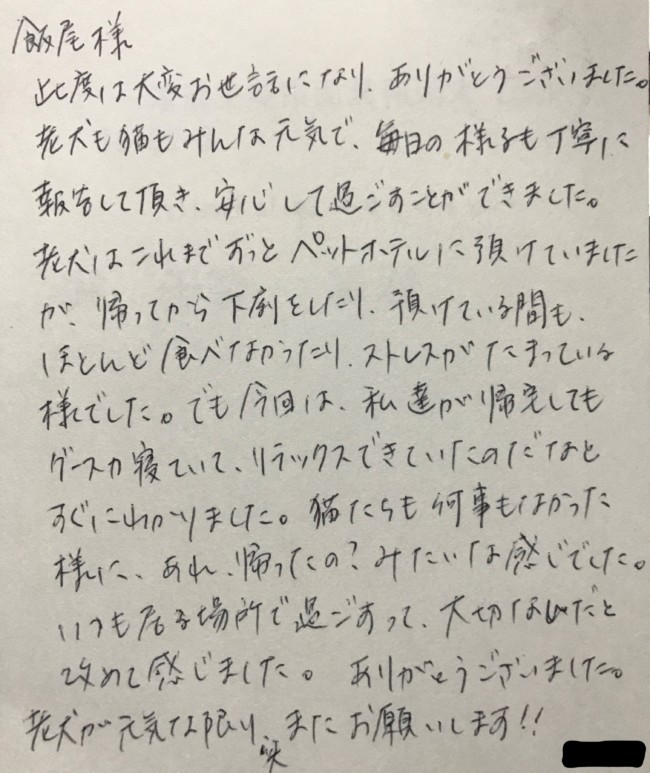 飯尾様
此度は大変お世話になり、ありがとうございました。
老犬も猫もみんな元気で、毎日の様子も丁寧に
報告して頂き、安心して過ごすことができました。
老犬はこれまでずっとペットホテルに預けていました
が、帰ってから下痢をしたり、預けている間も、
ほとんど食べなかったり、ストレスがたまっている
様でした。でも今回は、私達が帰宅しても
グースカ寝ていて、リラックスできていたのだなと
すぐにわかりました。猫たちも何事もなかった
様に、あれ、帰ったの？みたいな感じでした。
いつも居る場所で過ごすって、大切なんだと
改めて感じました。ありがとうございました。
老犬が元気な限り、またお願いします!!
笑